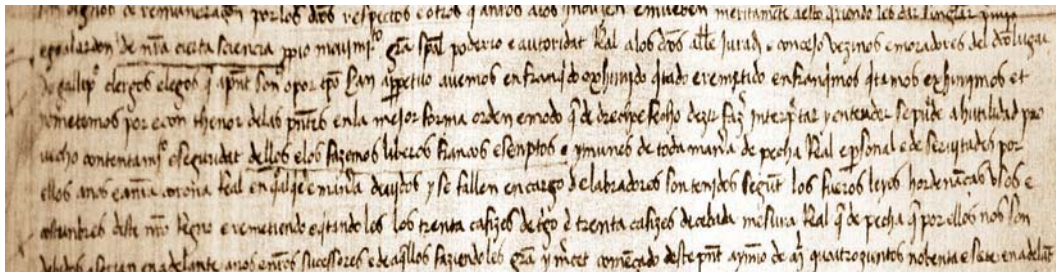 dignos de remuneraçon por los dos respectos e otros q anros aros mouen e mueben meritamēte aesto queriendo les dar singlar pmio
e gualardon de nr̃a cierta sciencia ppio mouimjº grã spal poderio e autoridat Real alos dos allle jurados e concejo vezinos e moradores del dco lugar
de gallipº clergos e legos q apnt son o por tpo seran appetuo auemos enfranqdo exhimido qtado e remetido enfranqimos qtamos exhimimos et
Remetemos por e con thenor delas pntes en la mejor forma orden e modo q de drecho e fecho dezir fazr interptar y entender se puede a hutilidad pro
uecho contentamjº e seguridat dellos e los fazemos liberos francos e senptos e ymunes de toda manr̃a de pecha Real e personal e de seruitudes por
ellos anos e anr̃a corona real en qalqere manr̃a deuidos y se fallen en cargo de labradores son tenidos segunt los fueros leyes hordenanças usos e
costunbres deste nr̃o Regno e remetiendo e qitando les los trenta cafizes de tgo e trenta cafizes de cebada mesura Real q de pecha q por ellos nos son
deuidos e seran en adelante anos e nr̃os sucessores e de aqllos faziendo les grã y mcet començado deste pnt aynno de mj quatrozientos nobenta e siete en adelant